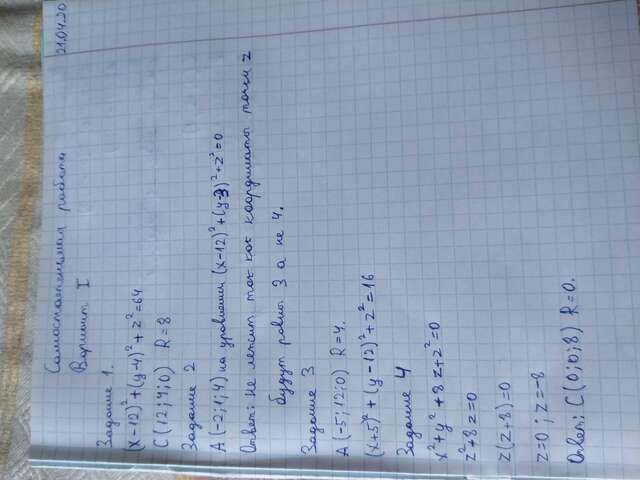 21.04.20
Самостоятельная работа
Вариант I
Задание 1.
(x-12)²+(y-4)²+z²=64
C(12;4;0) R=8
Задание 2
A(-2;1;4) на уравнении (x-12)²+(y-3)²+z²=0
Ответ: не лежит так как координаты точки z
будут равны 3 а не 4.
Задание 3
A(-5;12;0) R=4.
(x+5)²+(y-12)²+z²=16
Задание 4
x²+y²+8z+z²=0
z²+8z=0
z(z+8)=0
z=0; z=-8
Ответ: C(0;0;8) R=0.